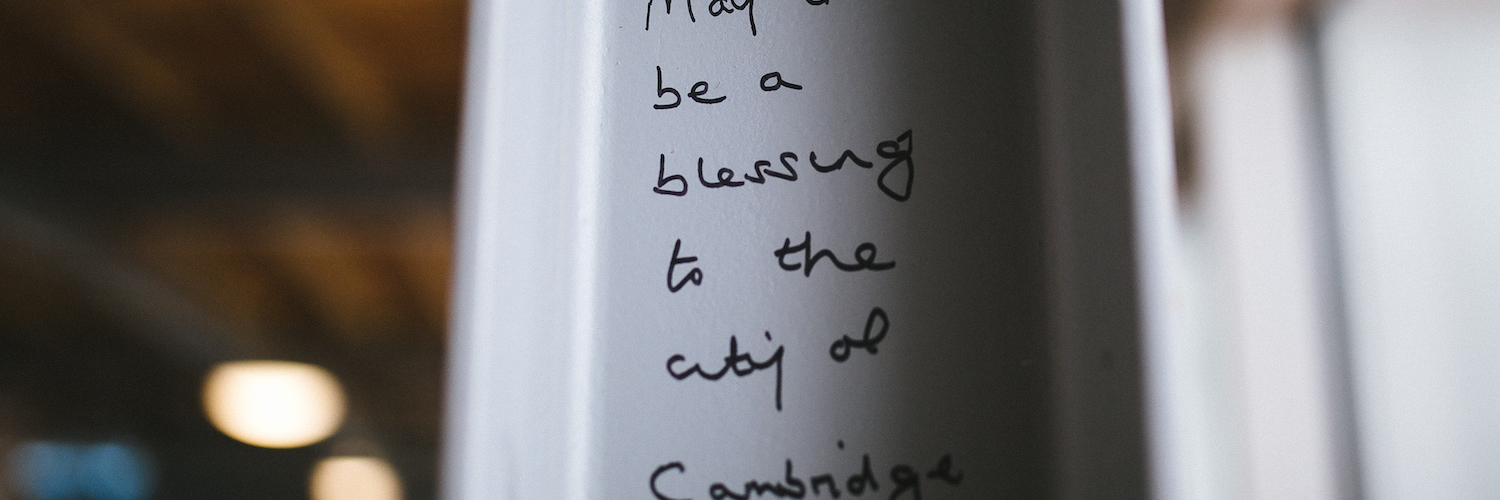 May
be a
blessing
to the
city of
Cambridge